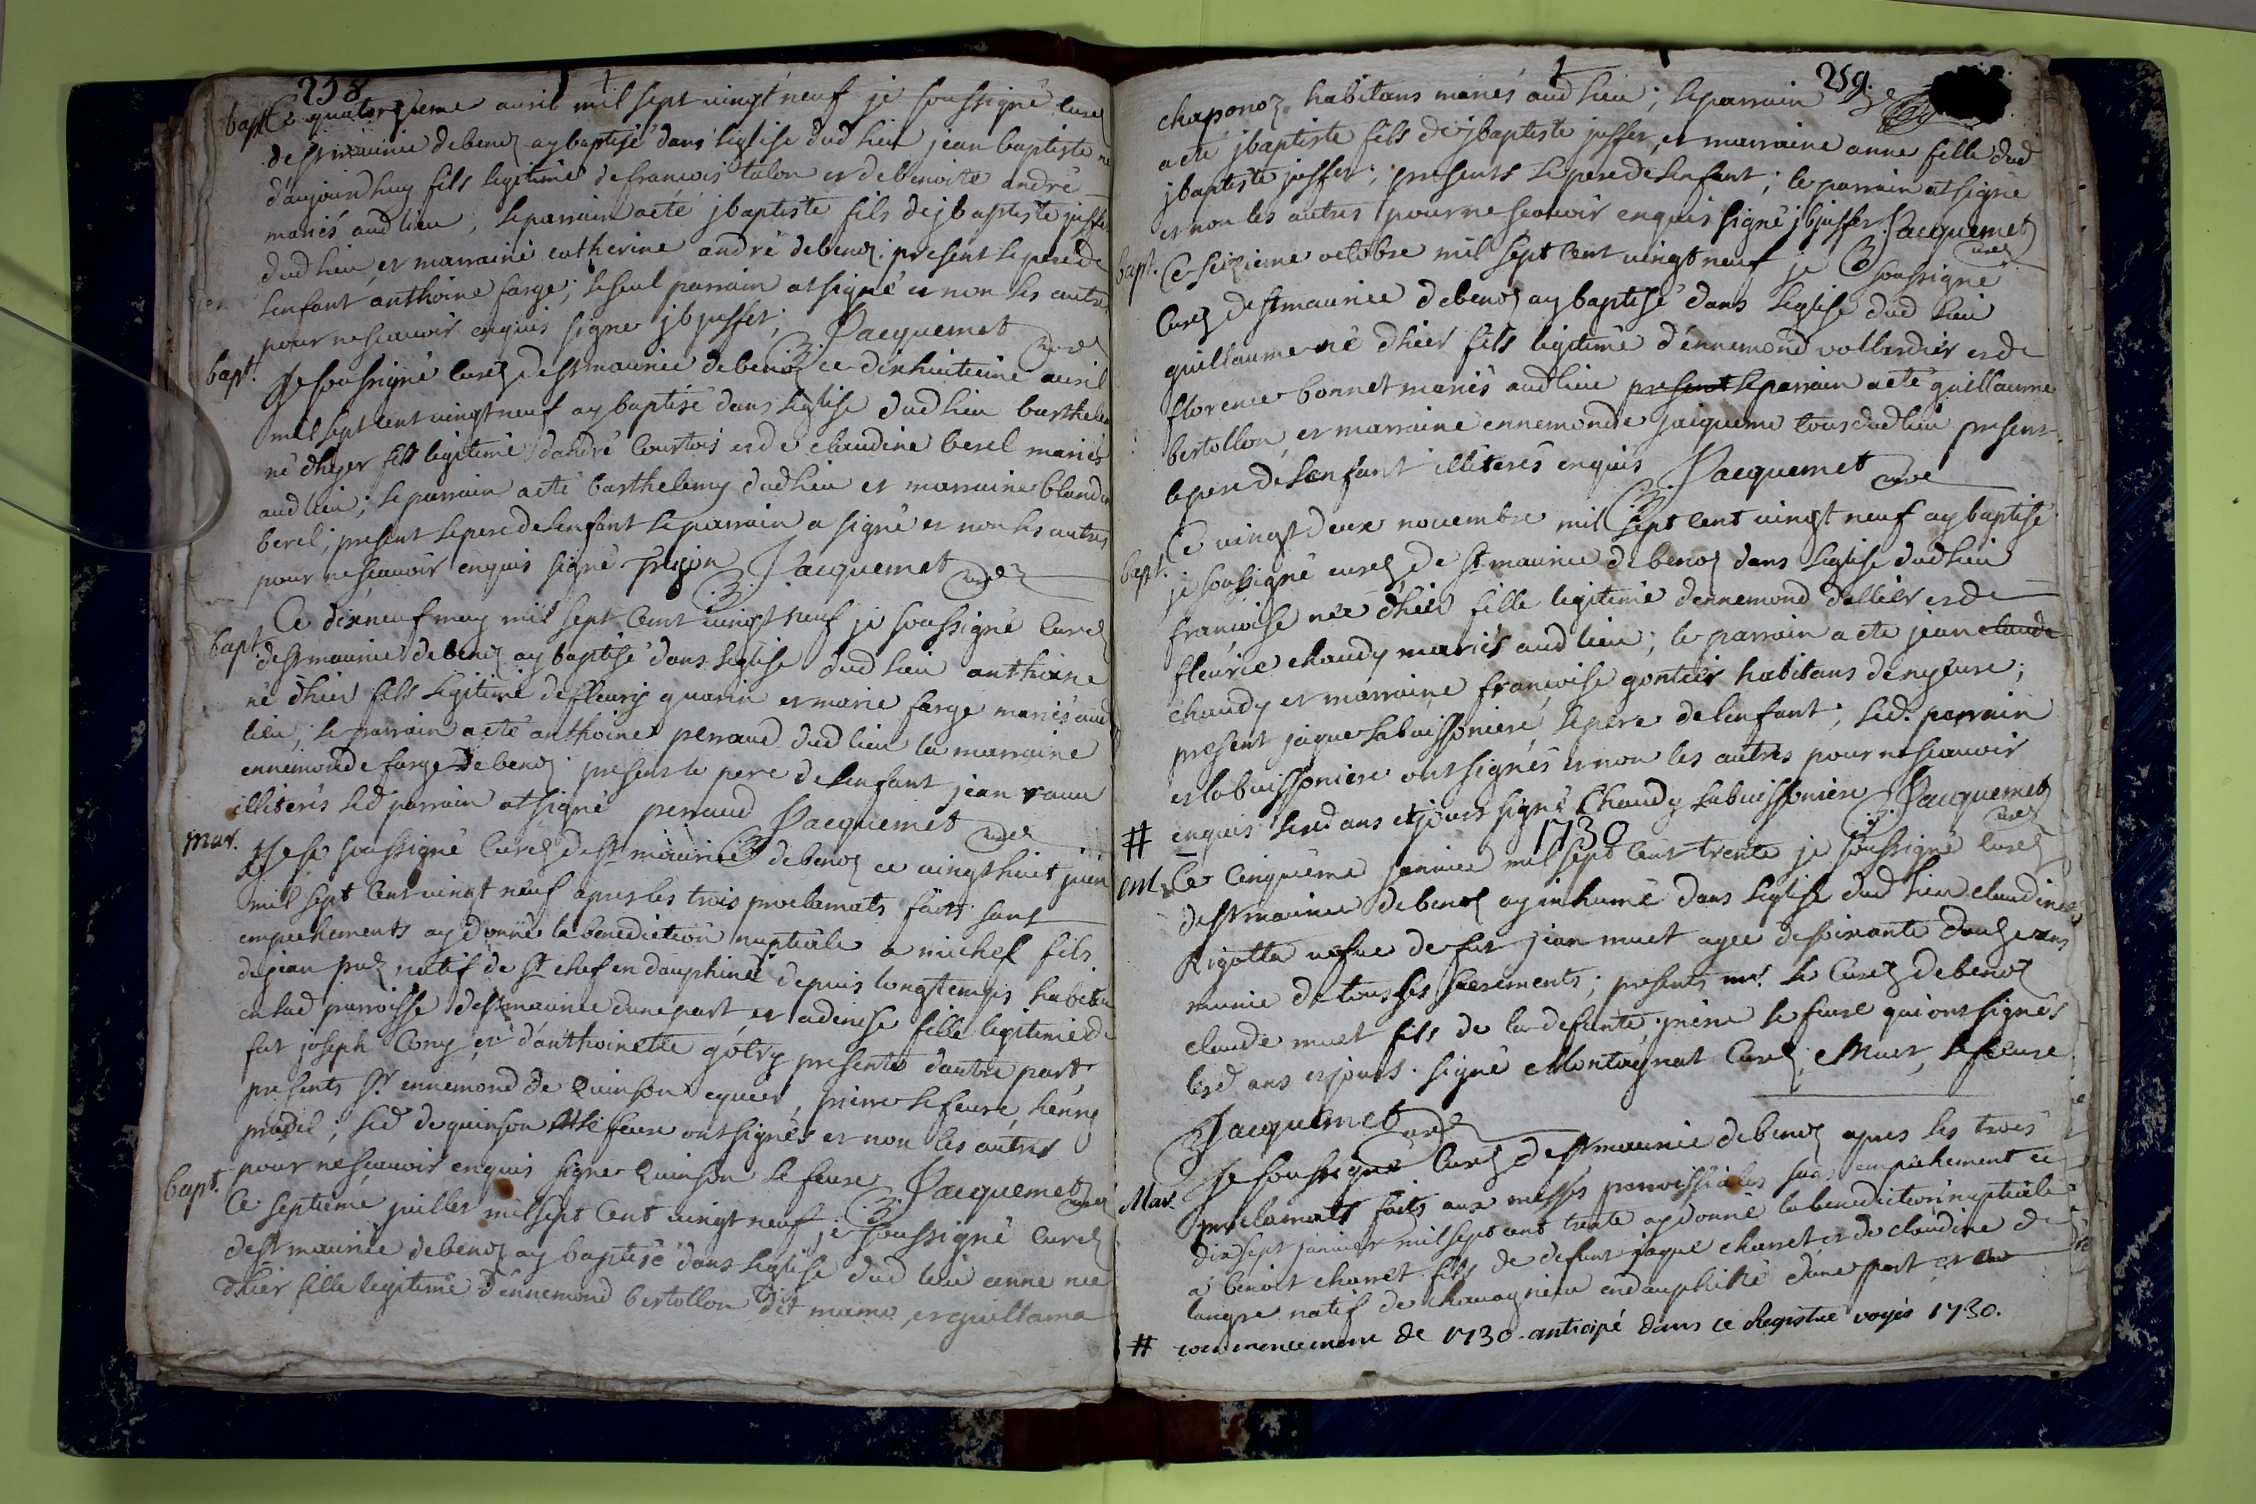 258
bapt. Ce quatorzieme avril mil sept vingt neuf je soussigné curé
de st maurice de benoz ay baptisé dans leglise dud lieu jean baptiste né
daujourdhuy fils legitime de francois talon et de benoite andré
mariés aud lieu, le parrain a eté jbaptiste fils de jbaptiste juffer
dud lieu et marraine catherine andré de benoz. present le pere de
lenfant anthoine farge; le seul parrain at signé et non les autres
pour ne scavoir enquis signe jbjuffer; Jacquemet curé
bapt. Je soussigné curez de st maurice de benoz ce dixhuitieme avril
mil sept cent vingt neuf ay baptisé dans leglise dud lieu barthelemy
né dhyer fils legitime dandré Courtois et de claudine berel mariés
aud lieu; le parrain a eté barthelemy dud lieu et marraine blandine
berel; present le pere de lenfant le parrain a signé et non les autres
pour ne scavoir enquis signé Jacquemet curé
bapt. Ce dixneuf may mil sept cent vingt neuf je soussigné curez
de st maurice de benoz ay baptisé dans leglise dud lieu anthoine
né dhier fils legitime de fleury guarin et marie farge mariés aud
lieu; le parrain a eté anthoine perraud dud lieu la marraine
ennemonde farge de benoz. present le pere de lenfant jean
illiterés led parrain at signé perraud Jacquemet curé
mar. Je soussigné curez de st maurice de benoz ce vingt huit juin
mil sept cent vingt neuf apres les trois proclamats faits sans
empechements ay donné la benediction nuptiale a michel fils
de jean natif de st chef en dauphiné depuis longtemps habitan
en lad parroisse de st maurice dune part, et a denise fille legitime de
fut joseph Cony et danthoinette golry presente dautre part,
presents sr. ennemond de Quinson ecuier, pierre lefeure, henry
pradel; led de quinson et le feure ont signés et non les autres
pour ne scavoir enquis signe Quinson Le feure Jacquemet curé
bapt. Ce septieme juillet mil sept cent vingt neuf je soussigné curez
de st maurice de benoz ay baptisé dans leglise dud lieu anne née
dhier fille legitime dennemond bertollon dit mama, et guillama
259.
chaponoz habitans mariés aud lieu; le parrain
a eté jbaptiste fils de jbaptiste juffer, et marraine anne fille dud
jbaptiste juffer; presents le pere de lenfant; le parrain at signé
et non les autres pour ne scavoir enquis signé jbjuffer. Jacquemet curé
bapt. Ce seizieme octobre mil sept cent vingt neuf je soussigné
Curez de st maurice de benoz ay baptisé dans leglise dud lieu
guillaume né dhier fils legitime dennemond vollerdier et de
florence bonnet mariés aud lieu present le parrain a eté guillaume
bertollon, et marraine ennemonde jaqueme tous dud lieu present
le pere de lenfant illiterés enquis Jacquemet curé
bapt. Ce vingt deux novembre mil sept cent vingt neuf ay baptisé
je soussigné curez de st maurice de benoz dans leglise dud lieu
francoise née dhier fille legitime dennemond dallier et de
fleurie chaudy mariés aud lieu; le parrain a eté jean claude
chaudy et marraine francoise gontier habitans de nyeure;
present jaque labuissoniere, le pere de lenfant; led. parrain
et labuissoniere ont signés et non les autres pour ne scavoir
# enquis lesd ans et jours signé Chaudy labuissoniere Jacquemet curé
1730
ent. Ce cinquieme janvier mil sept cent trente je soussigné curez
de st maurice de benoz ay inhumé dans leglise dud lieu claudine
Rigotta vefue de fut jean muet agee de soixante douze ans
munie de tous ses sacrements; presents mr. le Curez de benoz
claude muet fils de la defunte, pierre le feure qui ont signés
lesd ans et jours. signé Montagnat Curez, Muet, lefeure
Jacquemet curé
Mar. Je soussigné Curez de st maurice de benoz apres les trois
proclamats faits aux messes parroissiales sans empechement ce
dix sept janvier mil sept cent trente ay donné la benediction nuptiale
a benoit charret fils de defunt jaque charret et de claudine de
langre natif de chavagnieu en dauphiné dune part, et
# commencement de 1730. anticipé dans ce Registre voyés 1730.